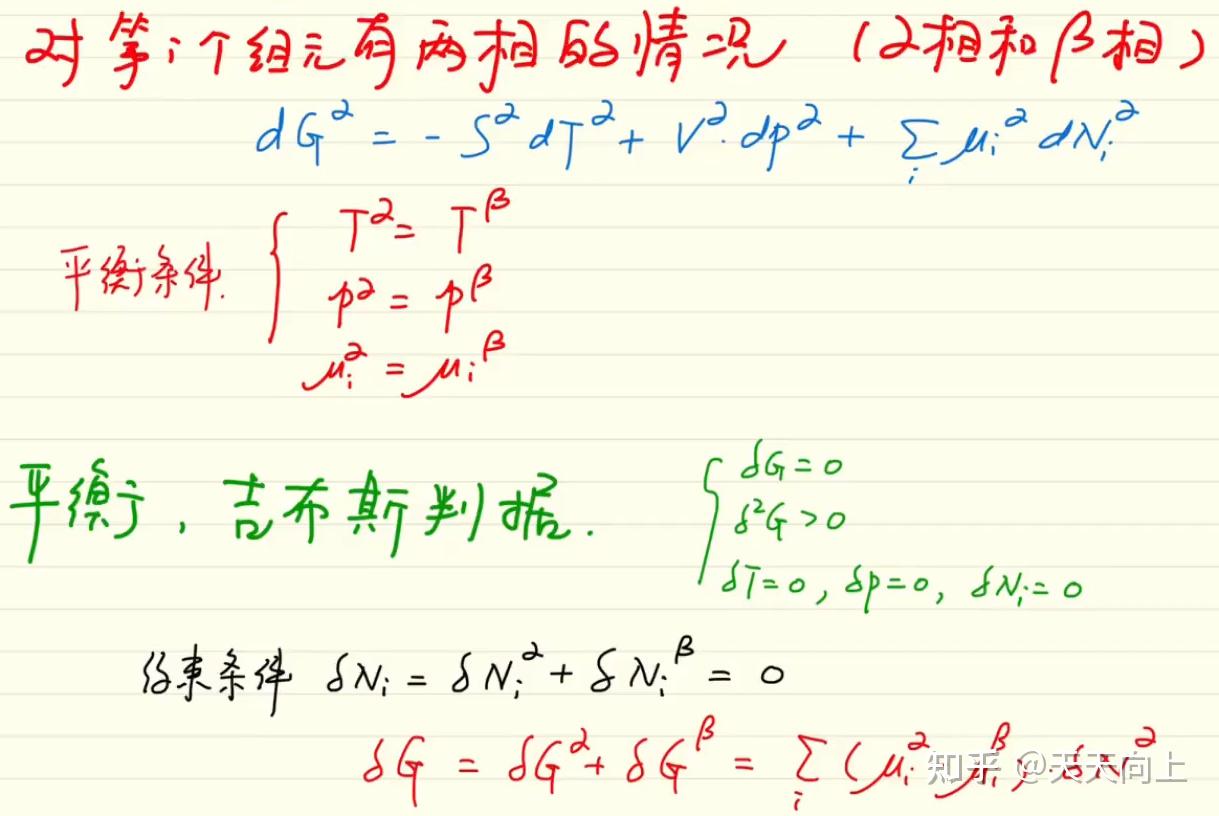 对第i个组元有两相的情况 (α相和β相)
dG^α = - S^α dT^α + V^α·dp^α + Σ_i μ_i^α dN_i^α
平衡条件. { T^α = T^β
p^α = p^β
μ_i^α = μ_i^β
平衡, 吉布斯判据. { δG = 0
δ²G > 0
δT = 0, δp = 0, δN_i = 0
约束条件 δN_i = δN_i^α + δN_i^β = 0
δG = δG^α + δG^β = Σ_i (μ_i^α - μ_i^β) δN^α
知乎 @天天向上